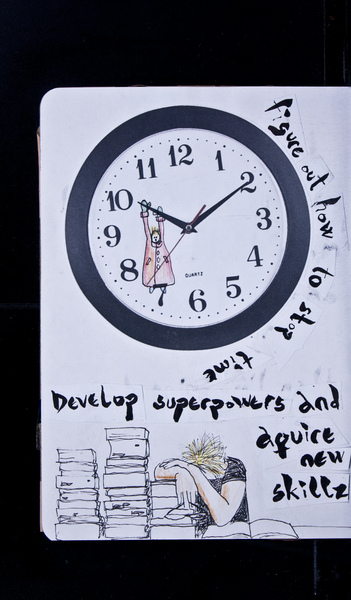 figure out how to stop time
12
1
2
3
4
5
6
7
8
9
10
11
QUARTZ
Develop superpowers and
aquire
new
skillz